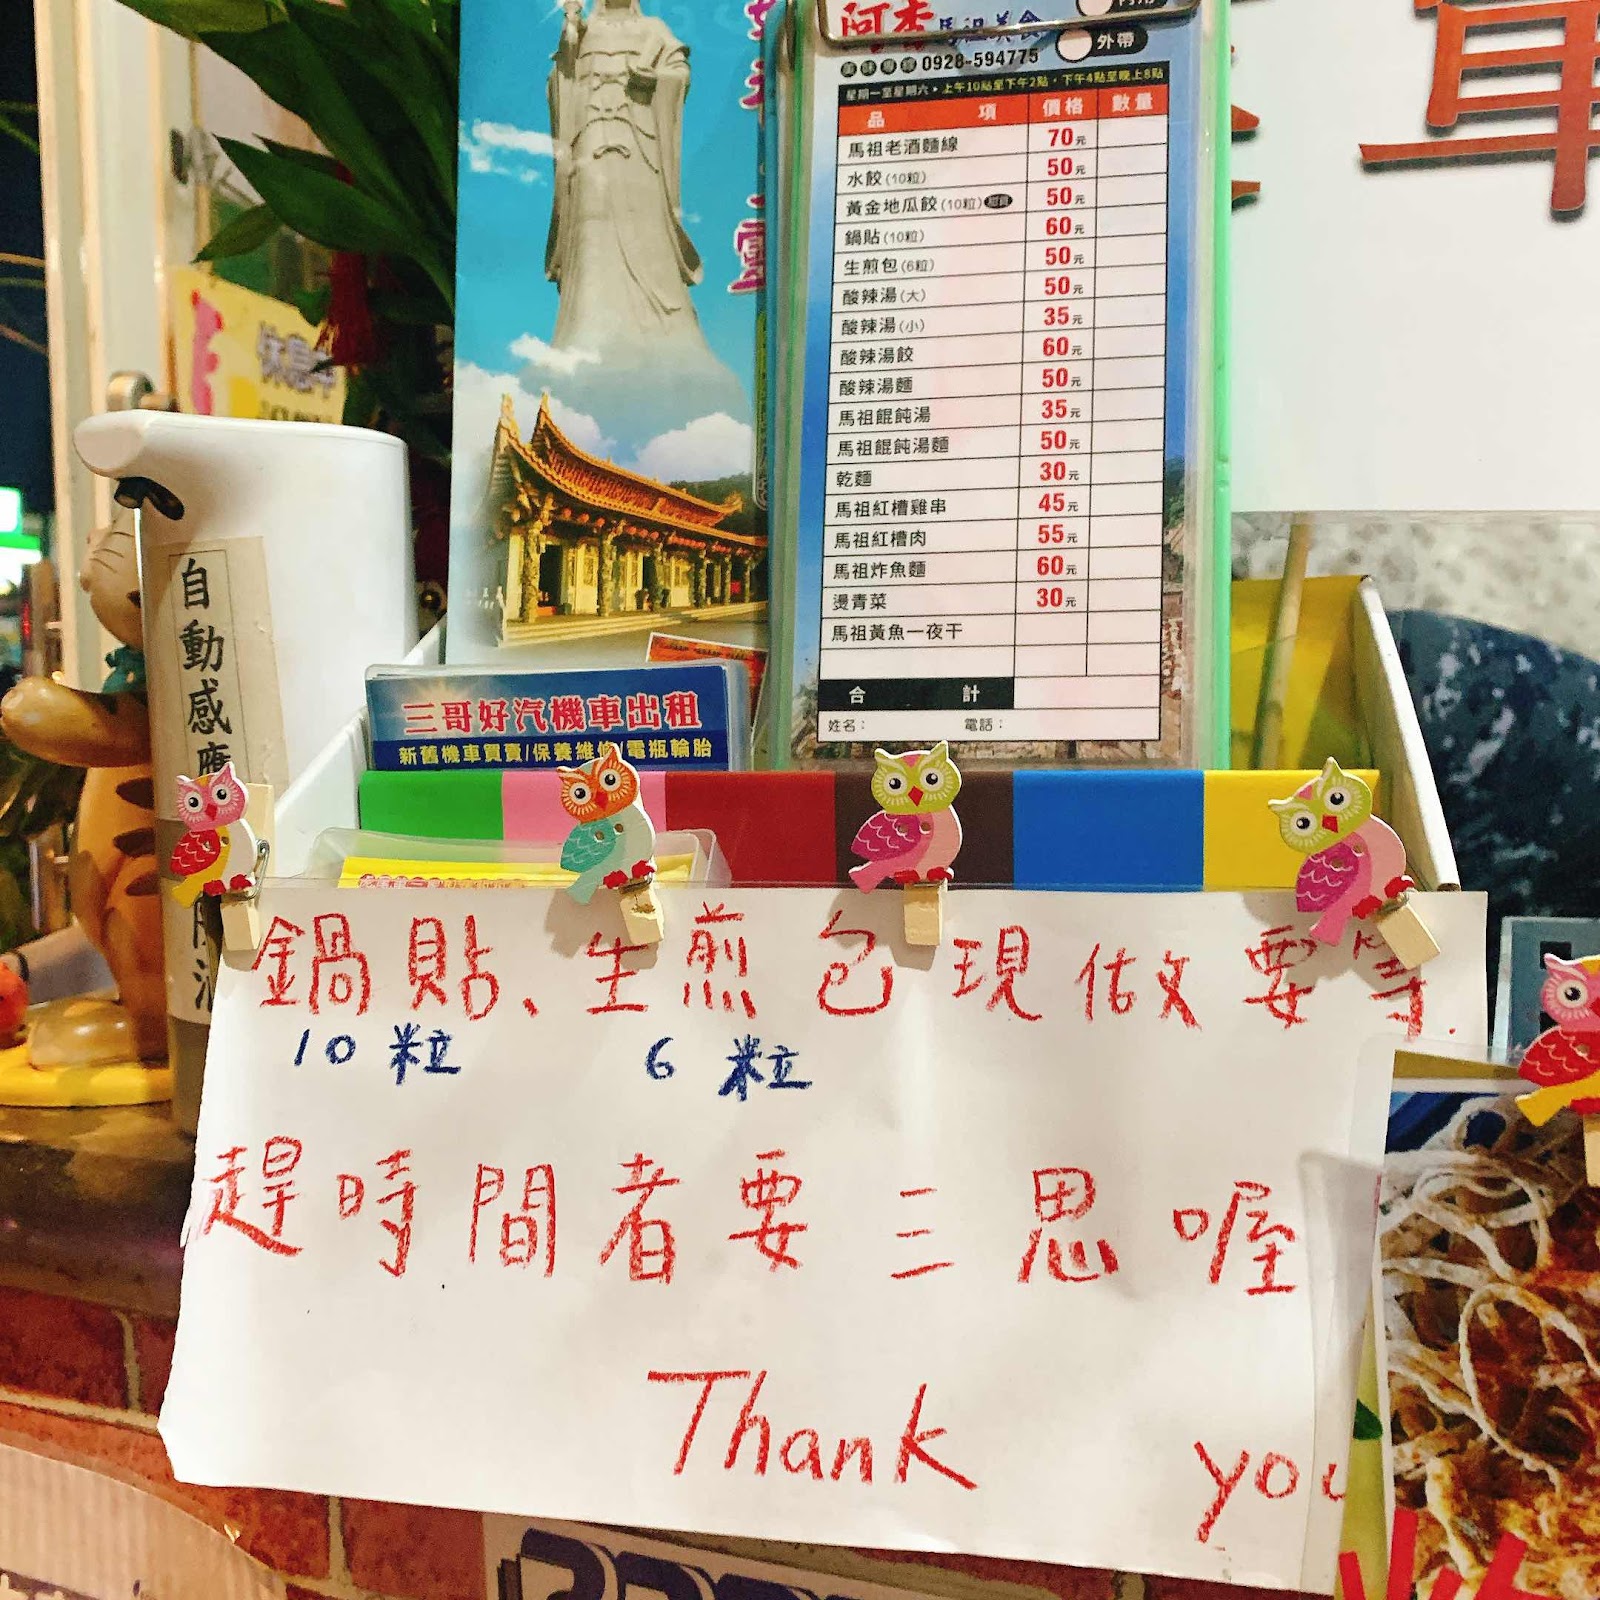 阿杏馬祖美食
外帶
美味專線 0928-594775
星期一至星期六 ▸ 上午10點至下午2點，下午4點至晚上8點
品項 價格 數量
馬祖老酒麵線 70元
水餃(10粒) 50元
黃金地瓜餃(10粒) 50元
鍋貼(10粒) 60元
生煎包(6粒) 50元
酸辣湯(大) 50元
酸辣湯(小) 35元
酸辣湯餃 60元
酸辣湯麵 50元
馬祖餛飩湯 35元
馬祖餛飩湯麵 50元
乾麵 30元
馬祖紅槽雞串 45元
馬祖紅槽肉 55元
馬祖炸魚麵 60元
燙青菜 30元
馬祖黃魚一夜干
合計
姓名： 電話：
休息中
自動感應
三哥好汽機車出租
新舊機車買賣/保養維修/電瓶輪胎
鍋貼、生煎包現做要等
10粒 6粒
趕時間者要三思喔
Thank you